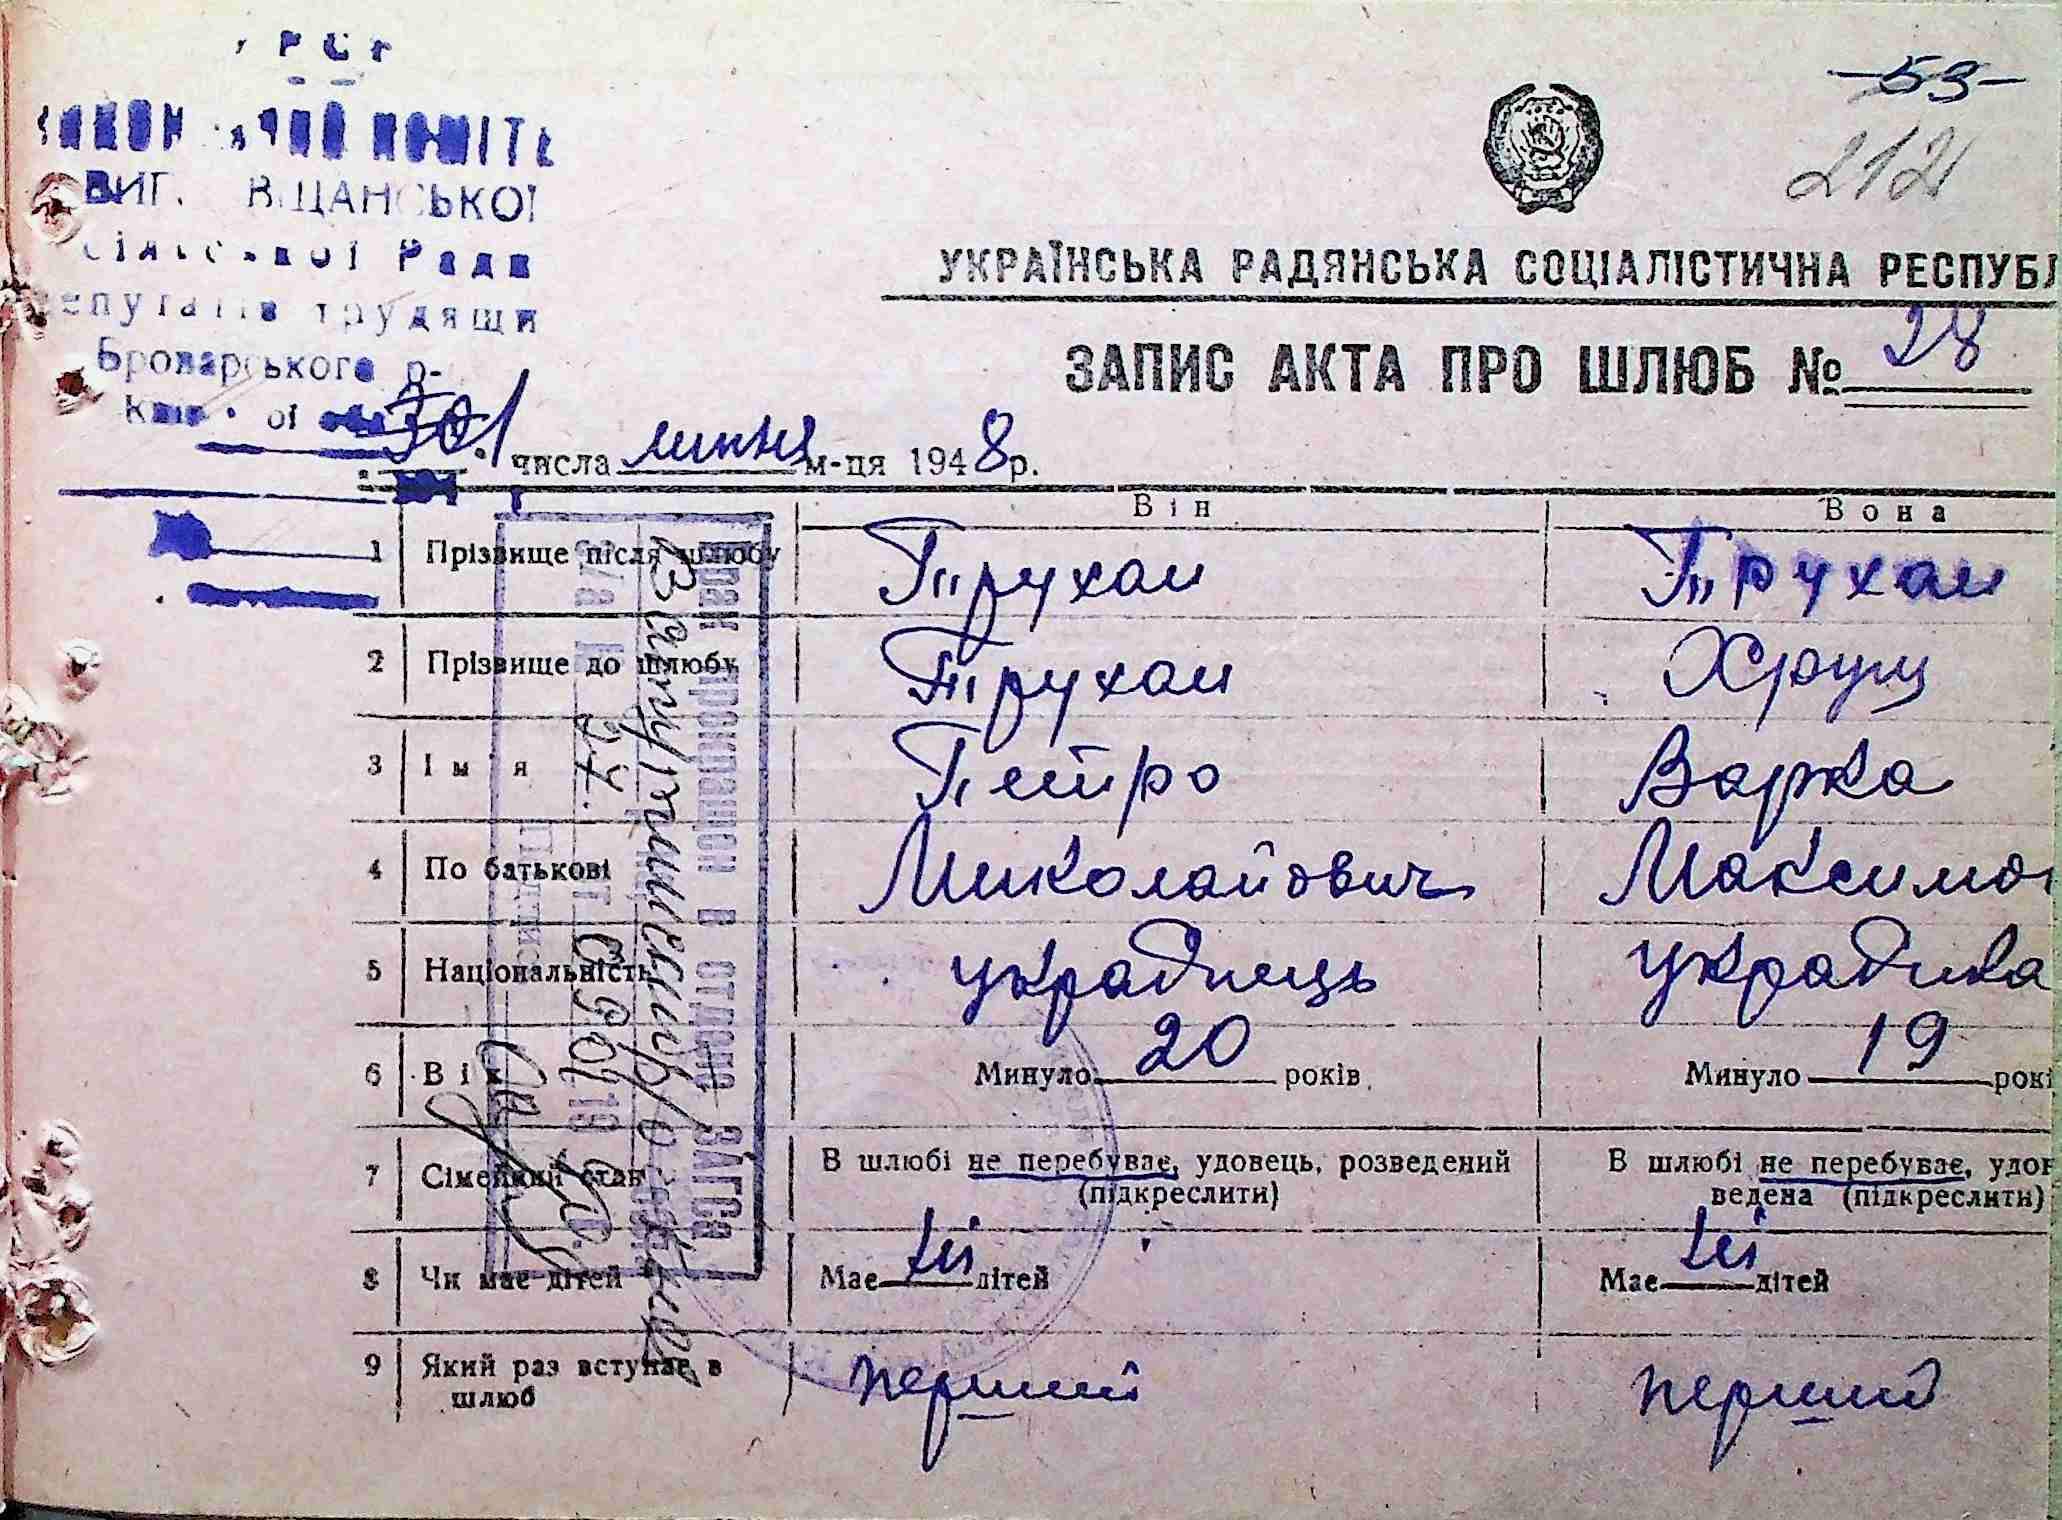 УРСР
ВИКОНАВЧИЙ КОМІТЕ
СІЛЬСЬКОЇ Ради
депутатів трудящи
Броварського р-
-53-
212
УКРАЇНСЬКА РАДЯНСЬКА СОЦІАЛІСТИЧНА РЕСПУБЛ
ЗАПИС АКТА ПРО ШЛЮБ № 28
числа липня м-ця 1948 р.
Він Вона
1 Прізвище після шлюбу Трухан Трухан
2 Прізвище до шлюбу Трухан Хрущ
3 Ім'я Петро Варка
4 По батькові Миколайович Максимо
5 Національність українець українка
6 Вік Минуло 20 років Минуло 19 рокі
7 Сімейний стан В шлюбі не перебуває, удовець, розведений (підкреслити) В шлюбі не перебуває, удов
ведена (підкреслити)
8 Чи має дітей Має дітей Має дітей
9 Який раз вступає в шлюб перший перший
Брак прекращен в отделе ЗАГСа
Подпис